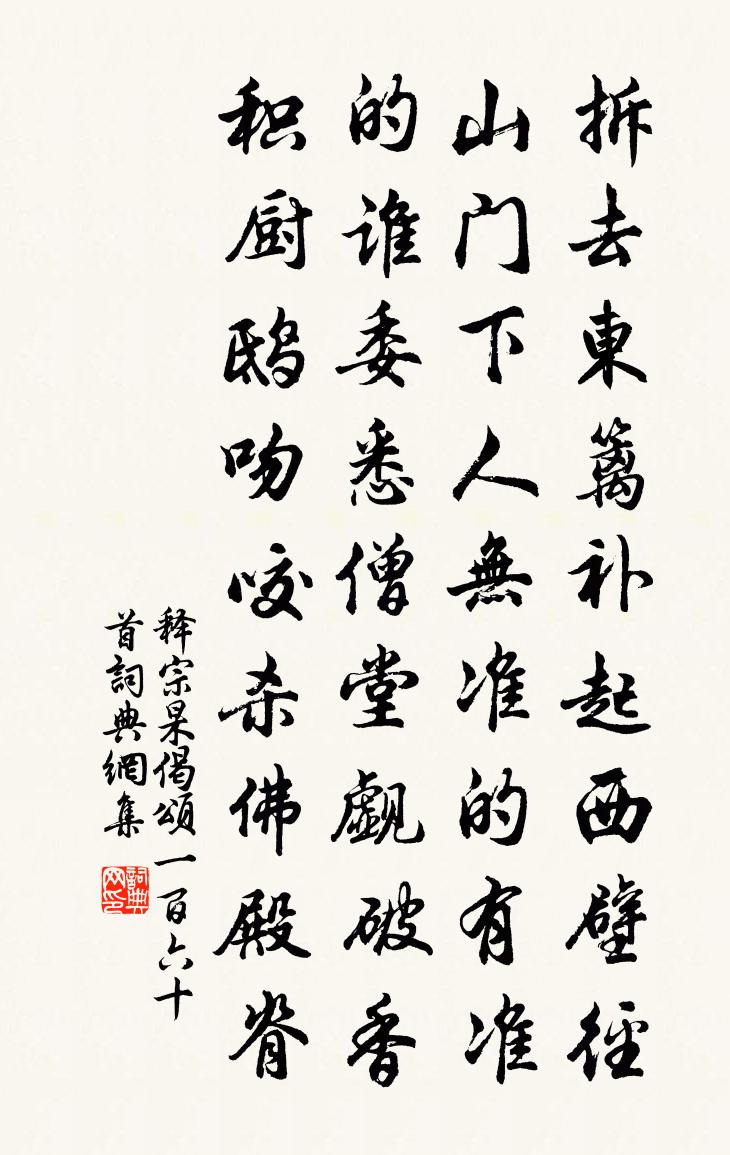 拆去東籬补起西壁径
山门下人無准的有准
的谁委悉僧堂觑破香
积厨鸱吻咬杀佛殿脊
释宗杲偈頌一百六十
首詞典網集
詞典网印